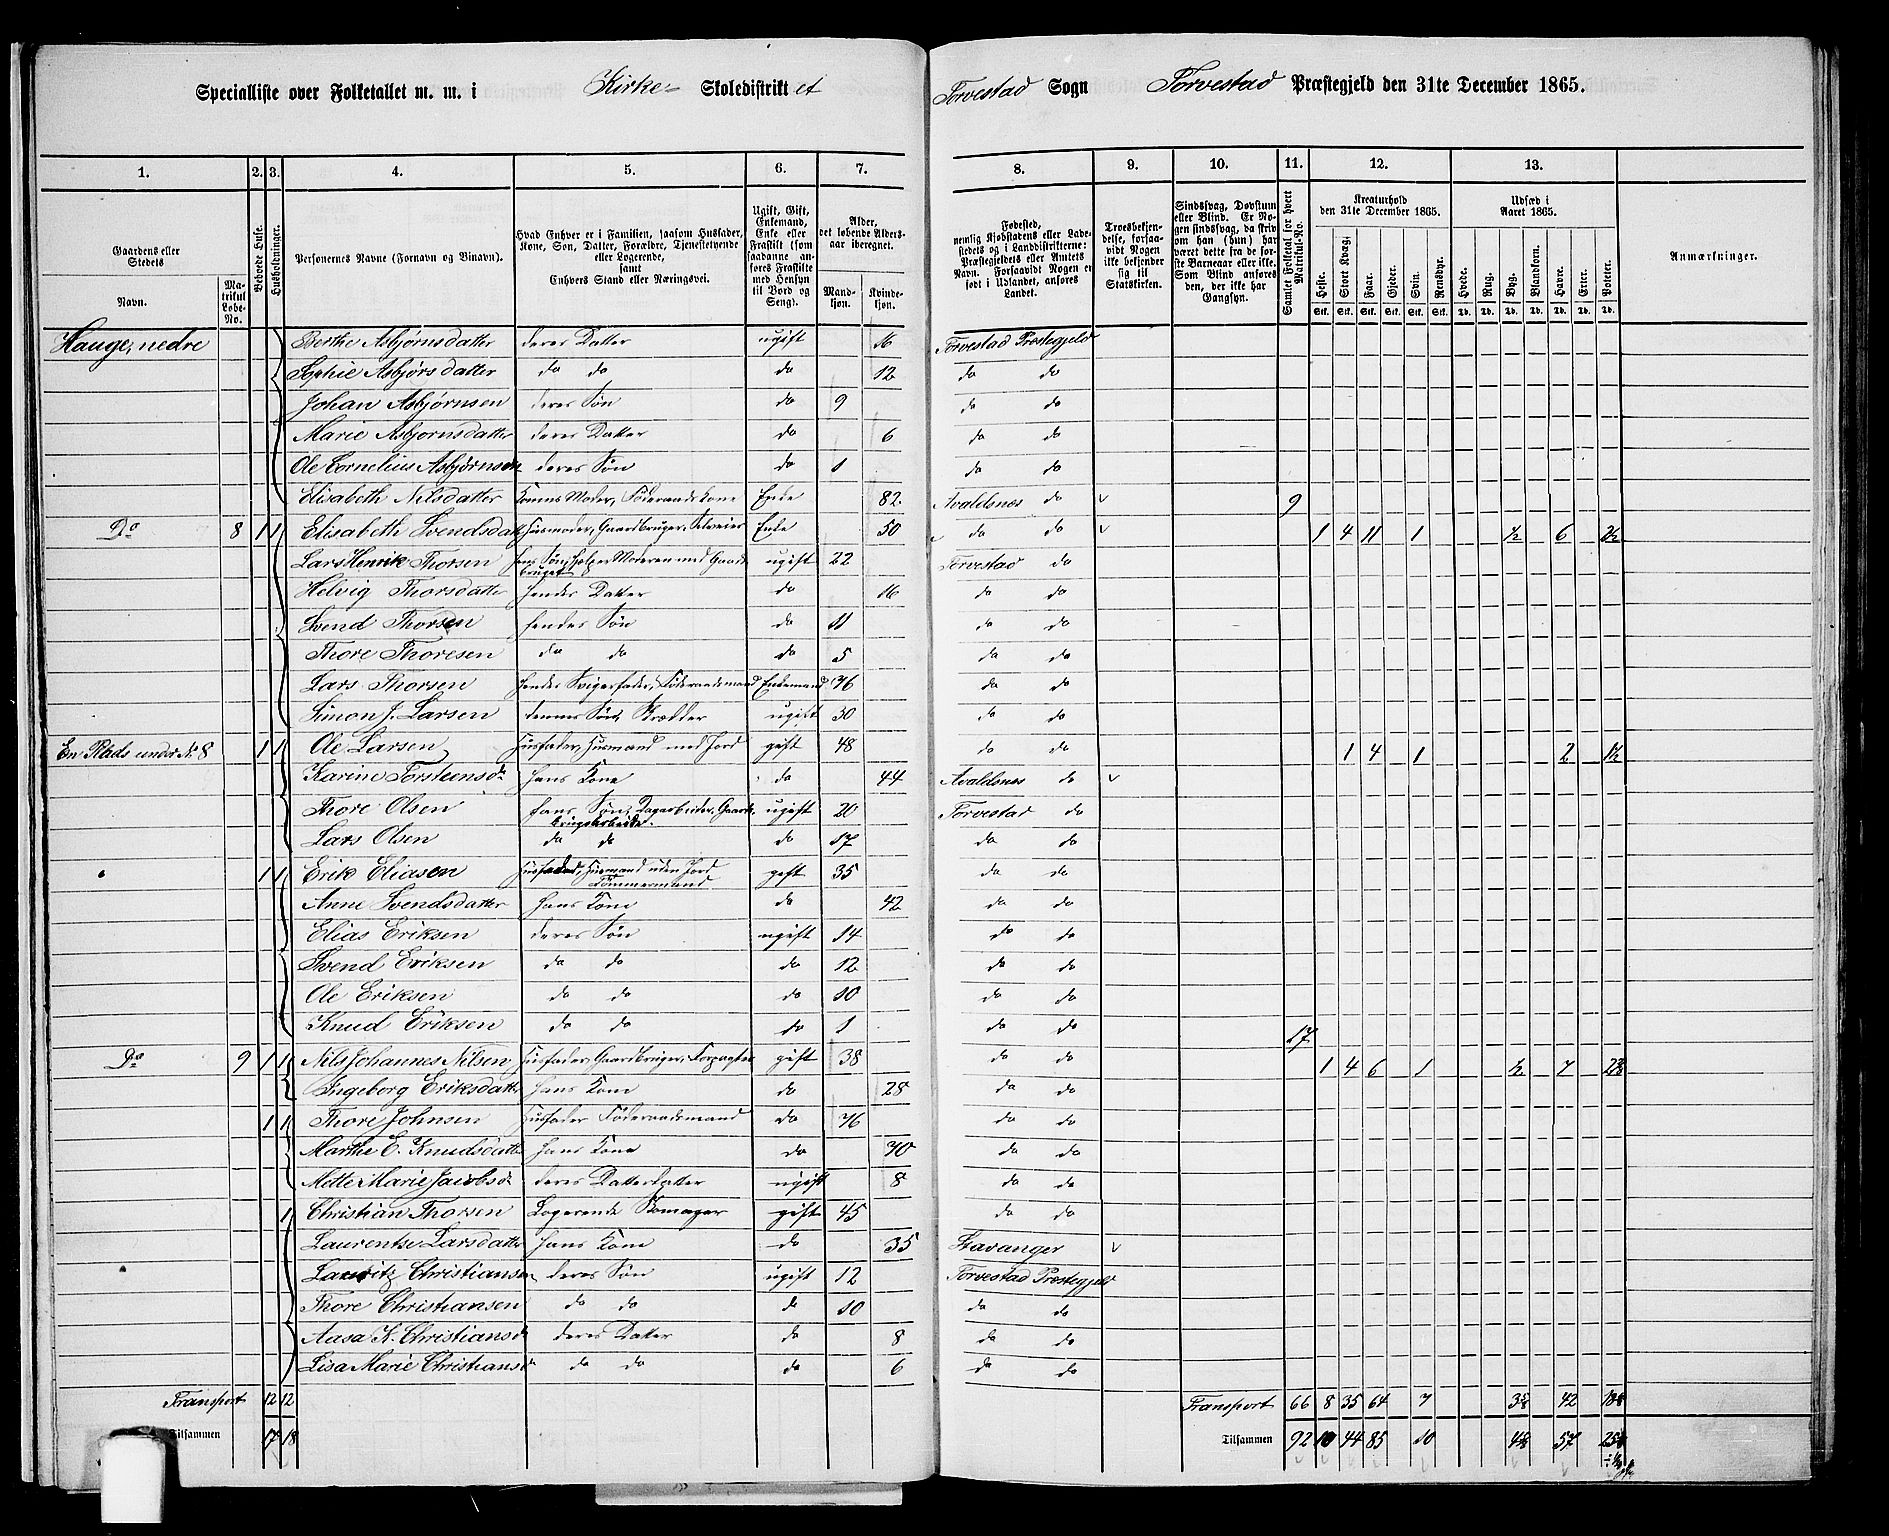 Specialliste over Folketallet m. m. i Kirke- Skoledistriktet Torvestad Sogn Torvestad Præstegjeld den 31te December 1865.
1. 2. 3. 4. 5. 6. 7. 8. 9. 10. 11. 12. 13.
Gaardens eller Stedets
Navn.
Matrikul Løbe-No.
Beboede Huse.
Husholdninger.
Personernes Navne (Fornavn og Binavn).
Hvad Enhver er i Familien, saasom Husfader, Kone, Søn, Datter, Forældre, Tjenestetyende eller Logerende, samt Enhvers Stand eller Næringsvei.
Ugift, Gift, Enkemand, Enke eller Fraskilt (som saadanne anføres Fraskilte med Hensyn til Bord og Seng).
Alder, det løbende Aldersaar iberegnet.
Mandkjøn. Kvindekjøn.
Fødested, nemlig Kjøbstadens eller Ladestedets og i Landdistrikterne: Præstegjeldets eller Amtets Navn. Forsaavidt Nogen er født i Udlandet, anføres Landet.
Troesbekjendelse, forsaavidt Nogen ikke bekjender sig til Statskirken.
Sindssvag, Døvstum eller Blind. Er Nogen sindssvag, da skriv om han (hun) har været dette fra de første Barneaar eller ikke. Som Blind anføres den, der ikke har Gangsyn.
Samlet Folketal for hvert Matrikul-No.
Kreaturhold den 31te December 1865.
Heste. Stort Kvæg. Faar. Gjeder. Svin. Rensdyr.
Udsæd i Aaret 1865.
Hvede. Rug. Byg. Blandkorn. Havre. Erter. Poteter.
Anmærkninger.
Hauge, nedre Berthe Asbjørnsdatter deres Datter ugift 16 Torvestad Prestegjeld
Sophie Asbjørsdatter do do do 12 do do
Johan Asbjørnsen deres Søn do 9 do do
Marie Asbjørnsdatter deres Datter do 6 do do
Ole Cornelius Asbjørnsen deres Søn do 1 do do
Elisabeth Nilsdatter Konens Moder, Føderaadskone Enke 82 Avaldsnes do 9
Do 8 1 1 Elisabeth Svendsdatt Husmoder, Gaardbruger, Selveier Enke 50 do do 1 4 11 1 ½ 6
Lars Henrik Thorsen hens Søn, hjelper Moderen med Gaardbruget ugift 22 Torvestad do
Helvig Thorsdatter hendes Datter do 16 do do
Svend Thorsen hendes Søn do 11 do do
Thore Thoresen do do do 5 do do
Lars Thorsen hendes Svigerfader, Føderaadsmand Enkemand 76 do do
Simon J. Larsen dennes Søn, Skrædder ugift 30 do do
En Plads under No 8 1 1 Ole Larsen Husfader, Husmand med Jord gift 48 do do 1 4 1 2 1½
Karine Torstensd. hans Kone do 44 Avaldsnes do
Thore Olsen hans Søn, Dagarbeider, Gaardbrugsarbeide ugift 20 Torvestad do
Lars Olsen do do do 17 do do
1 1 Erik Eliasen Husfader, Husmand uden Jord Tømmermand gift 35 do do
Anne Svendsdatter hans Kone do 42 do do
Elias Eriksen deres Søn ugift 14 do do
Svend Eriksen do do do 12 do do
Ole Eriksen do do do 10 do do
Knud Eriksen do do do 1 do do 17
Do 9 1 1 Nils Johannes Nilsen Husfader, Gaardbruger, Forpagter gift 38 do do 1 4 6 1 ½ 7
Ingeborg Eriksdatter hans Kone do 28 do do
1 1 Thore Johnsen Husfader Føderaadsmand do 76 do do
Marthe E. Knudsdatt hans Kone do 70 do do
Mette Marie Jacobsd. deres Datterdatter ugift 8 do do
1 Christian Thorsen Logerende Skomager gift 45 do do
Laurentse Larsdatter hans Kone do 35 Stavanger
Lauritz Christiansen deres Søn ugift 12 Torvestad Prestegjeld
Thore Christiansen do do do 10 do do
Aasa K. Christiansd deres Datter do 8 do do
Lisa Marie Christiansd do do do 6 do do
Transport 12 12 Transport 66 8 35 64 7 42
Tilsammen 17 18 Tilsammen 92 10 44 85 10 57